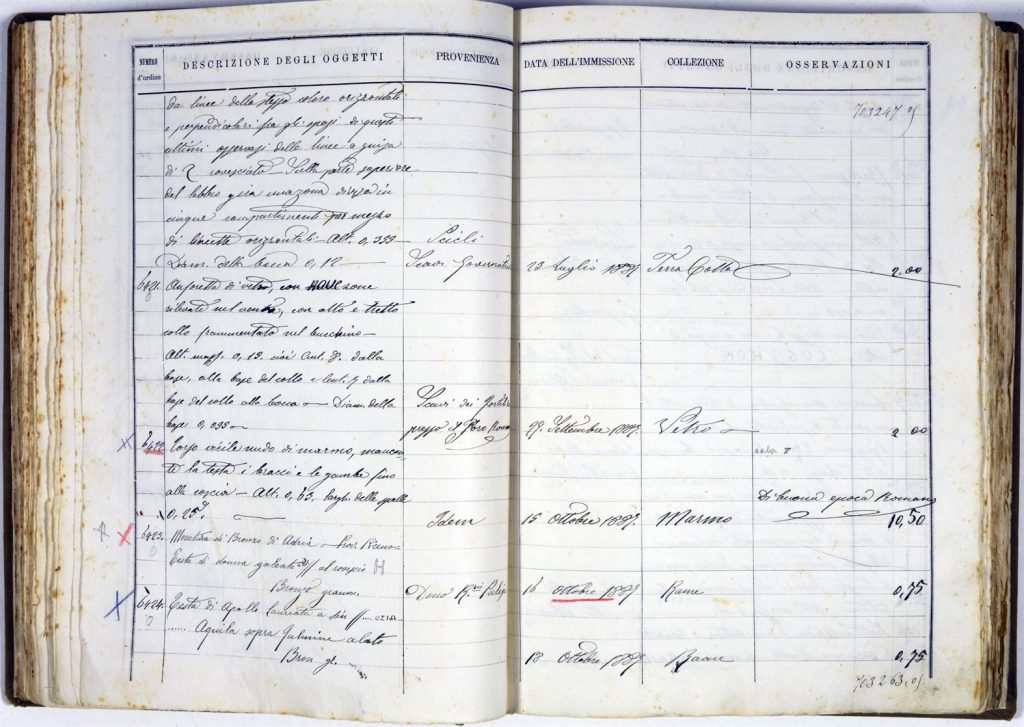 NUMERO d'ordine DESCRIZIONE DEGLI OGGETTI PROVENIENZA DATA DELL'IMMISSIONE COLLEZIONE OSSERVAZIONI
da linee dello stesso colore orizzontali 703247
e perpendicolari fra gli spazi di questi
ultimi osservasi delle linee a guisa
di rovesciato – Sulla parte superiore
del labbro gira una zona divisa in
cinque compartimenti per mezzo
di lineette orizzontali – Alt. 0,333 Scicli
Diam. della bocca 0,12 Scavi Governativi 22 Luglio 1887 Terra Cotta 2.00
6421 Anforetta di vetro, con zone
rilevate nel ventre, con alto e stretto
collo frammentato nel bucchino –
Alt. mass. 0,12. cioè Cent. 8. dalla
base, alla base del collo e Cent. dalla
base del collo alla bocca – Diam. della Scavi dei
base 0,035 presso il Foro 29. Settembre 1887. Vetro 2 00
6422 Torso virile nudo di marmo, mancan sala
te la testa i bracci e le gambe fino
alla coscia – Alt. 0,63. largh. delle spalle Di buona epoca Romana
0,25 Idem 15 Ottobre 1887. Marmo 10,50
6423. Monetina di Bronzo di Adria
Testa di donna al rovescio H
Bronzo Dono 18 Ottobre 1887 Rame 0,75
6424. Testa di Apollo Laureata a sin
Aquila sopra fulmine alato
Bron gr. 18 Ottobre 1887 Rame 0,75
703263